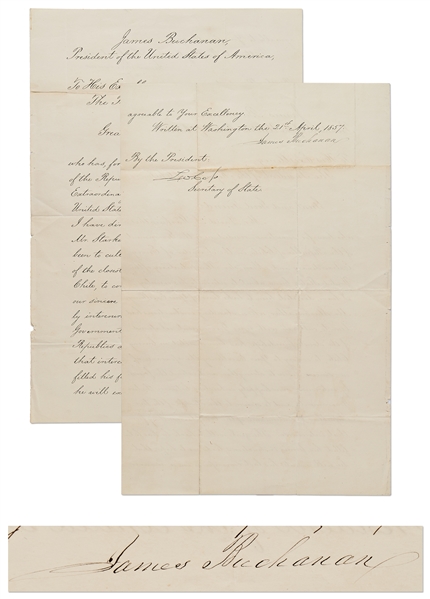 James Buchanan,
President of the United States of America,
To His Ex
The
Grea
who has, for
of the Repu
Extraordina
United State
I have dec
Mr. Starkw
been to cult
of the closest
Chile, to con
our sincere
by intercour
Government
Republics a
that intere
filled his f
he will co
agreeable to Your Excellency.
Written at Washington the 21st April, 1857.
James Buchanan
By the President:
Lew Cass
Secretary of State.
James Buchanan